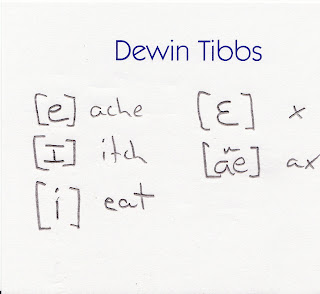 Dewin Tibbs
[e] ache [ɛ] x
[I] itch [æ̃] ax
[i] eat